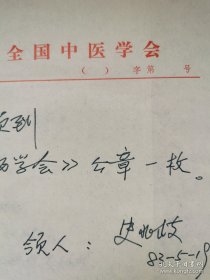 全国中医学会
( ) 字第 号
领到
学会》公章一枚。
领人: 史兆岐
83-5-19